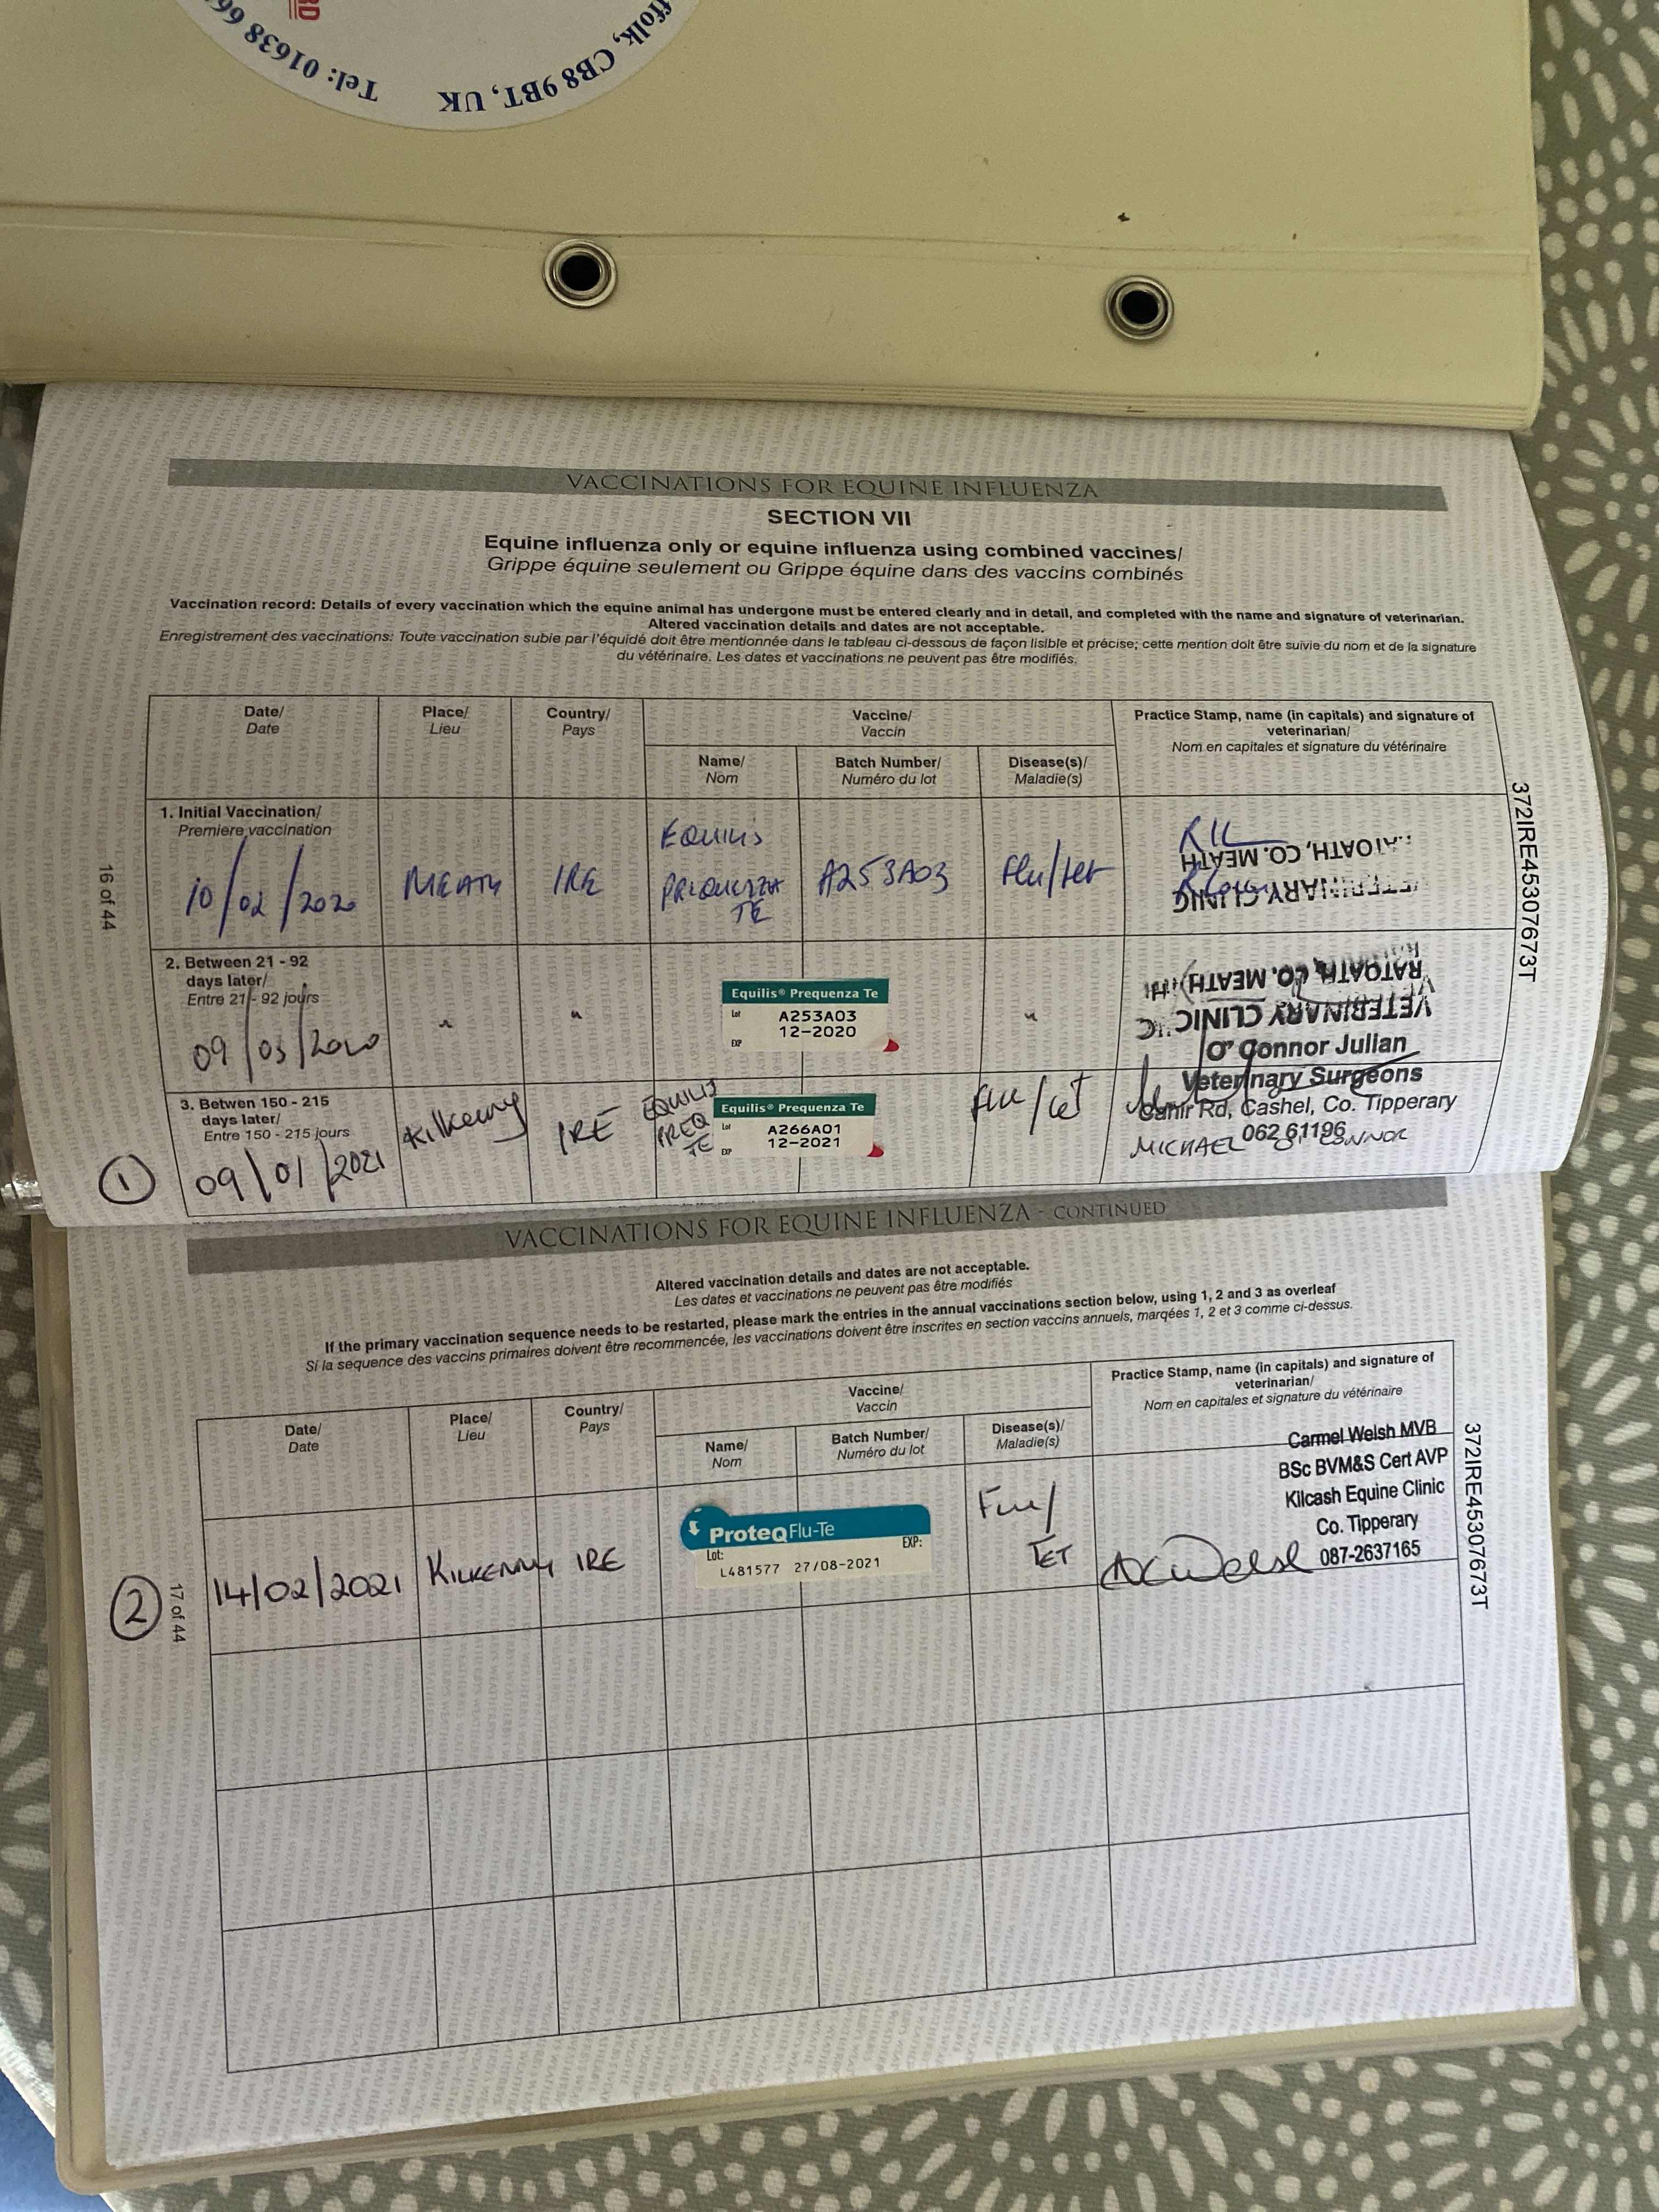 RD
Tel: 01638 66
ffolk, CB8 9BT, UK
VACCINATIONS FOR EQUINE INFLUENZA
SECTION VII
Equine influenza only or equine influenza using combined vaccines/
Grippe équine seulement ou Grippe équine dans des vaccins combinés
Vaccination record: Details of every vaccination which the equine animal has undergone must be entered clearly and in detail, and completed with the name and signature of veterinarian.
Altered vaccination details and dates are not acceptable.
Enregistrement des vaccinations: Toute vaccination subie par l'équidé doit être mentionnée dans le tableau ci-dessous de façon lisible et précise; cette mention doit être suivie du nom et de la signature
du vétérinaire. Les dates et vaccinations ne peuvent pas être modifiés.
Date/
Date
Place/
Lieu
Country/
Pays
Vaccine/
Vaccin
Name/
Nom
Batch Number/
Numéro du lot
Disease(s)/
Maladie(s)
Practice Stamp, name (in capitals) and signature of
veterinarian/
Nom en capitales et signature du vétérinaire
1. Initial Vaccination/
Premiere vaccination
10/02/2020
MEATH
IRE
EQUILIS
PREQUENZA
TE
A253A03
Flu/tet
VETERINARY CLINIC
RATOATH, CO. MEATH
2. Between 21 - 92
days later/
Entre 21 - 92 jours
09/03/2020
"
"
Equilis® Prequenza Te
Lot
A253A03
12-2020
EXP
"
VETERINARY CLINIC
RATOATH, CO. MEATH
3. Betwen 150 - 215
days later/
Entre 150 - 215 jours
1
09/01/2021
Kilkenny
IRE
EQUILIS
PREQ
TE
Equilis® Prequenza Te
Lot
A266A01
12-2021
EXP
Flu/tet
O' Connor Julian
Veterinary Surgeons
Cahir Rd, Cashel, Co. Tipperary
062 61196
MICHAEL O'CONNOR
16 of 44
372IRE45307673T
VACCINATIONS FOR EQUINE INFLUENZA - CONTINUED
Altered vaccination details and dates are not acceptable.
Les dates et vaccinations ne peuvent pas être modifiés
If the primary vaccination sequence needs to be restarted, please mark the entries in the annual vaccinations section below, using 1, 2 and 3 as overleaf
Si la sequence des vaccins primaires doivent être recommencée, les vaccinations doivent être inscrites en section vaccins annuels, marqées 1, 2 et 3 comme ci-dessus.
Date/
Date
Place/
Lieu
Country/
Pays
Vaccine/
Vaccin
Name/
Nom
Batch Number/
Numéro du lot
Disease(s)/
Maladie(s)
Practice Stamp, name (in capitals) and signature of
veterinarian/
Nom en capitales et signature du vétérinaire
2
14/02/2021
KILKENNY
IRE
ProteqFlu-Te
Lot:
EXP:
L481577 27/08-2021
Flu/
TET
Carmel Welsh MVB
BSc BVM&S Cert AVP
Kilcash Equine Clinic
Co. Tipperary
087-2637165
17 of 44
372IRE45307673T